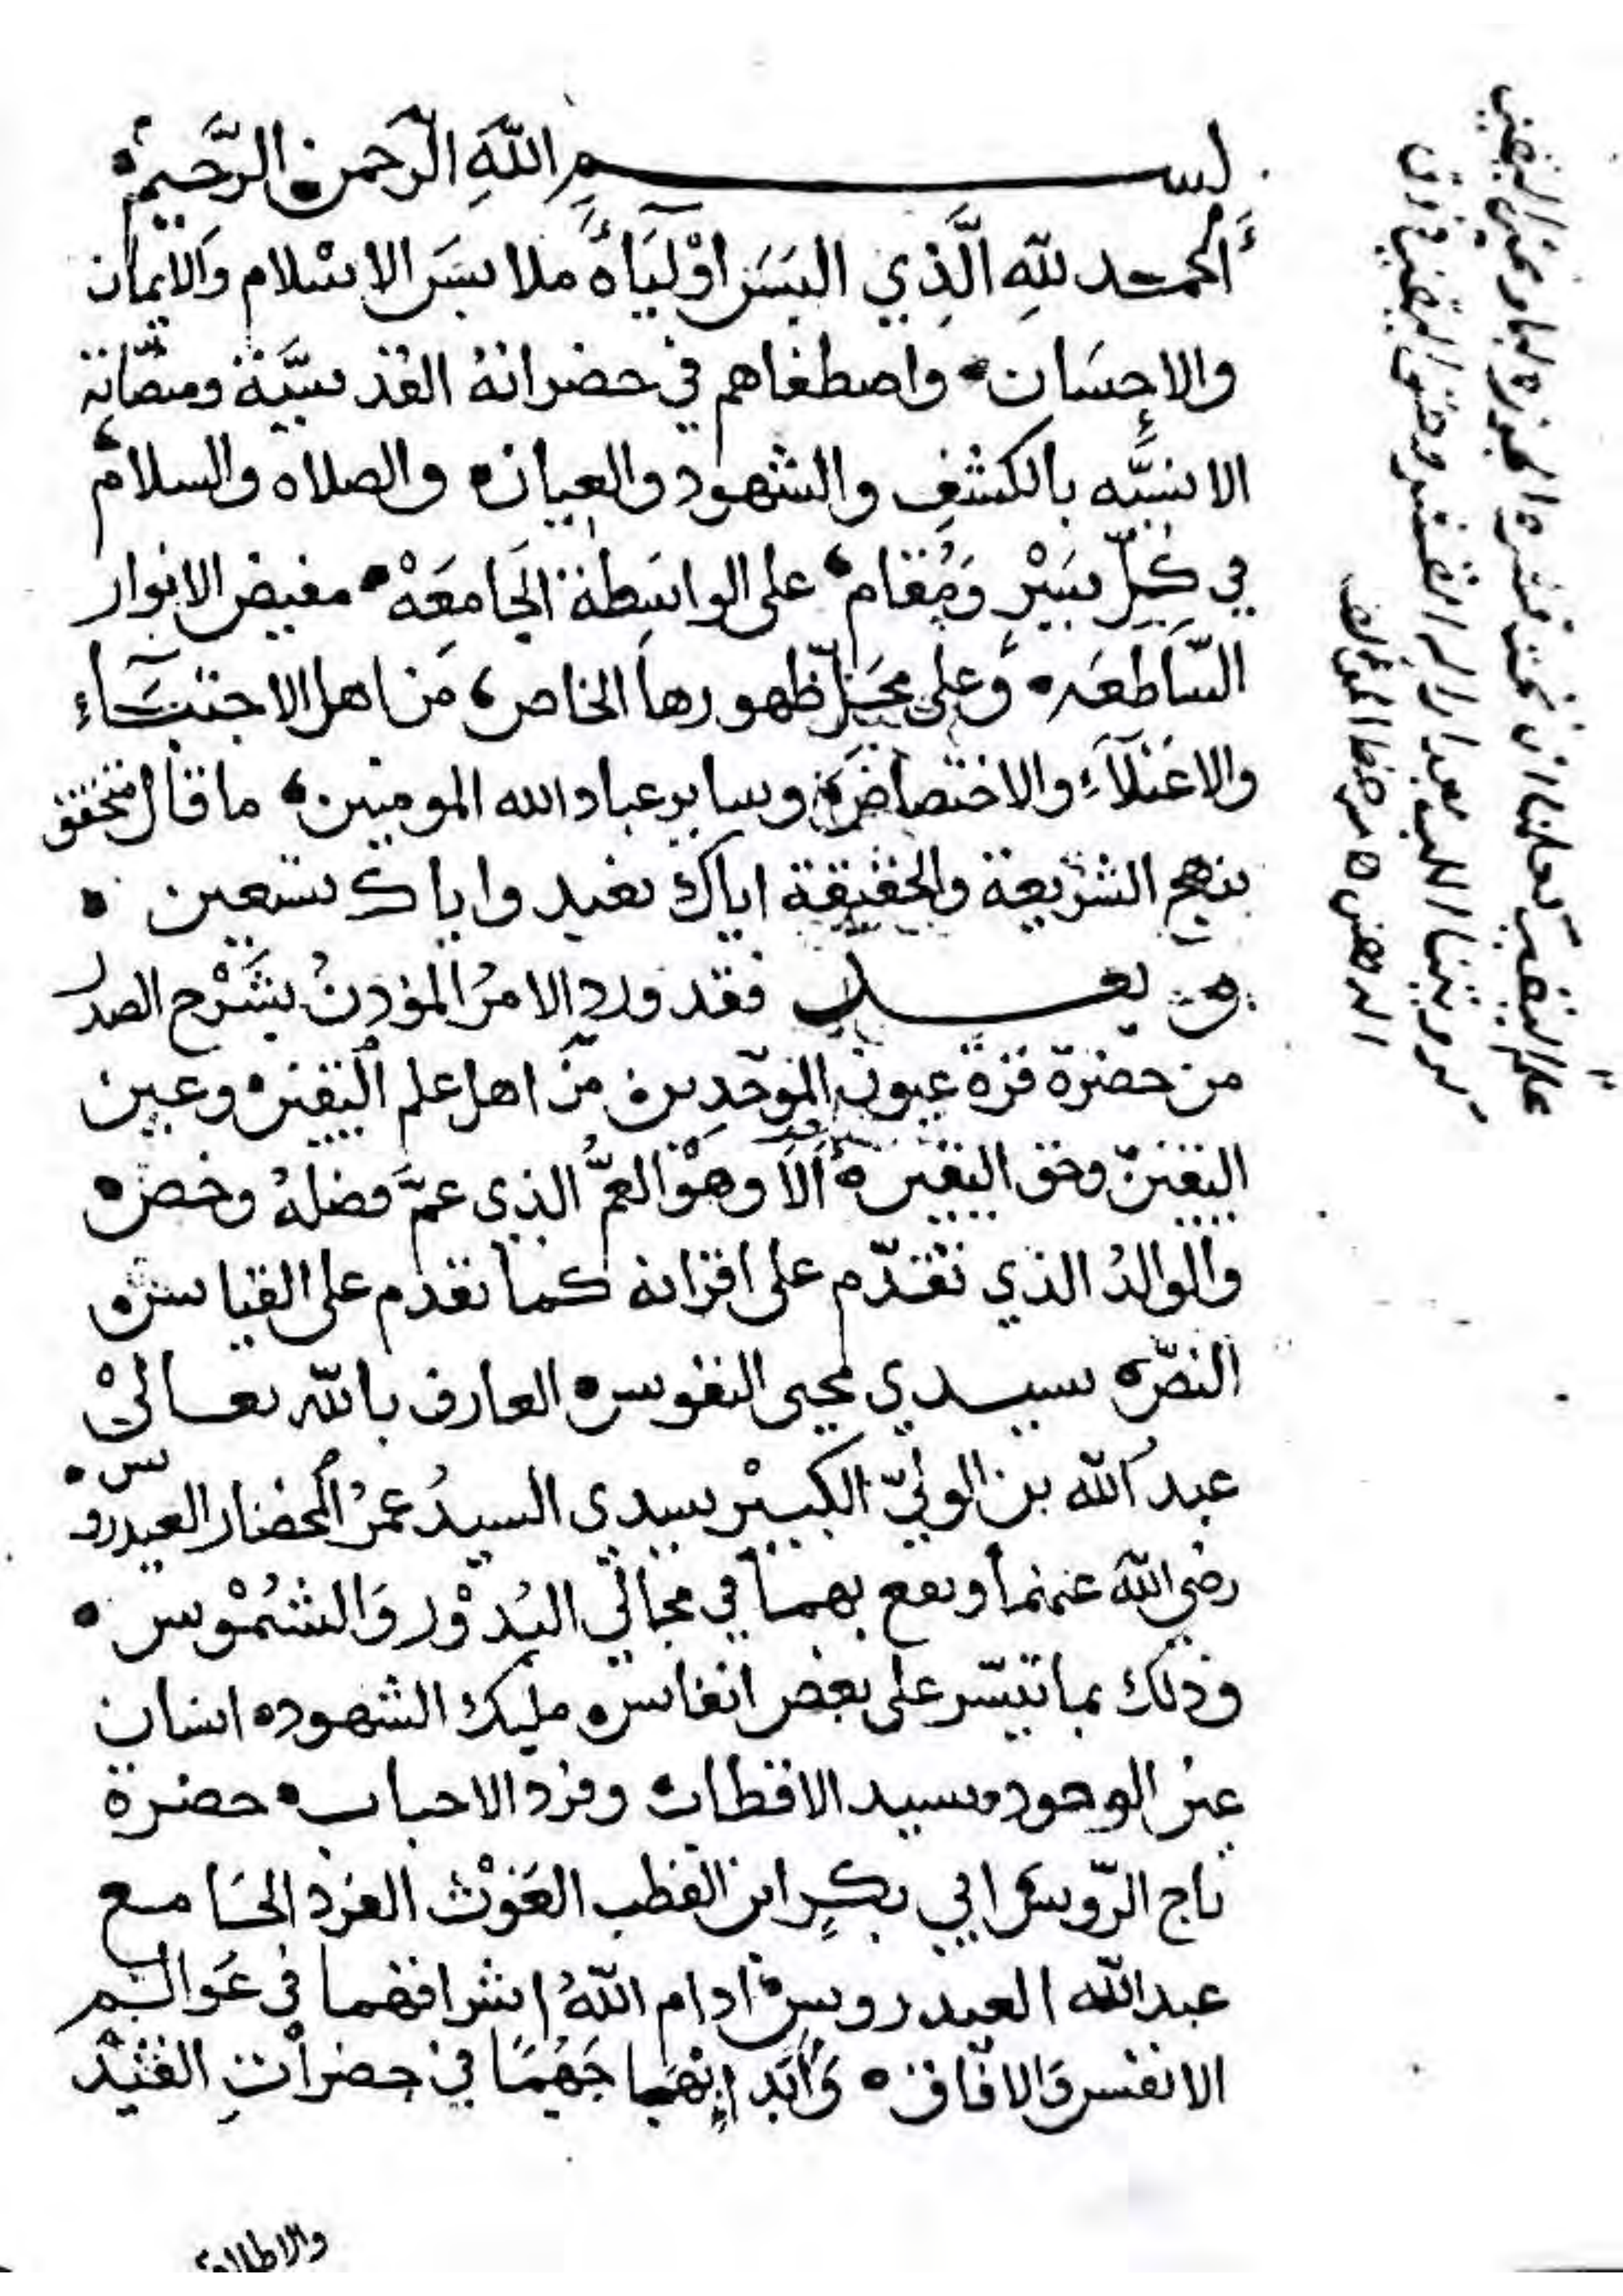 بسم الله الرحمن الرحيم
الحمد لله الذي البس اولياءه ملابس الاسلام والايمان
والاحسان واصطفاهم في حضراته القدسية ومنصاته
الانسيه بالكشف والشهود والعيان والصلاه والسلام
في كل سير ومقام على الواسطة الجامعه مفيض الانوار
الساطعه وعلى محل ظهورها الخاص من اهل الاجتباء
والاعتلاء والاختصاص وساير عباد الله المومنين ما قال متحقق
بنهج الشريعة والحقيقة اياك نعبد واياك نستعين
وبعد فقد ورد الامر الموذن بشرح الصدر
من حضرة قرة عيون الموحدين من اهل علم اليقين وعين
اليقين وحق اليقين ألا وهو العم الذي عم فضله وخص
والوالد الذي تقدم على اقرانه كما تقدم على القياس
النص سيدي محيى النفوس العارف بالله تعالى
عبد الله بن الولي الكبير سيدي السيد عمر المحضار العيدروس
رضي الله عنهما ونفع بهما في مجالي البدور والشموس
وذلك بما تيسر على بعض انفاس مليك الشهود انسان
عين الوجود وسيد الاقطاب وفرد الاحباب حضرة
تاج الروس ابي بكر ابن القطب الغوث الفرد الجامع
عبد الله العيدروس ادام الله اشراقهما في عوالم
الانفس والافاق وأبد ابهما جهما في حضرات القيد
والاطلاق
علم اليقين